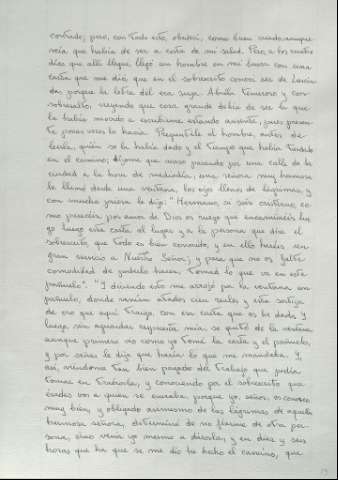 contado; pero, con todo esto, obedecí, como buen criado, aunque
veía que había de ser a costa de mi salud. Pero, a los cuatro
días que allí llegué, llegó un hombre en mi busca con una
carta que me dio, que en el sobrescrito conocí ser de Luscin
da, porque la letra del era suya. Abríla temeroso y con
sobresalto, creyendo que cosa grande debía de ser la que
la había movido a escribirme estando ausente, pues presen
te pocas veces lo hacía. Preguntéle al hombre, antes de
leerla, quién se la había dado y el tiempo que había tardado
en el camino; díjome que acaso pasando por una calle de la
ciudad a la hora de mediodía, una señora muy hermosa
le llamó desde una ventana, los ojos llenos de lágrimas, y
con mucha priesa le dijo: "Hermano, si sois cristiano, co
mo parecéis, por amor de Dios os ruego que encaminéis lue
go luego esta carta al lugar y a la persona que dice el
sobrescrito, que todo es bien conocido, y en ello haréis un
gran servicio a Nuestro Señor; y para que no os falte
comodidad de poderlo hacer, tomad lo que va en este
pañuelo". "Y diciendo esto me arrojó por la ventana un
pañuelo, donde venían atados cien reales y esta sortija
de oro que aquí traigo, con esa carta que os he dado. Y
luego, sin aguardar respuesta mía, se quitó de la ventana
aunque primero vio como yo tomé la carta y el pañuelo,
y por señas le dije que haría lo que me mandaba. Y
así, viéndome tan bien pagado del trabajo que podía
tomar en traérosla, y conociendo por el sobrescrito que
érades vos a quien se enviaba, porque yo, señor, os conozco
muy bien, y obligado asimesmo de las lágrimas de aquella
hermosa señora, determiné de no fiarme de otra per
sona, sino venir yo mesmo a dárosla; y en diez y seis
horas que ha que se me dio he hecho el camino, que